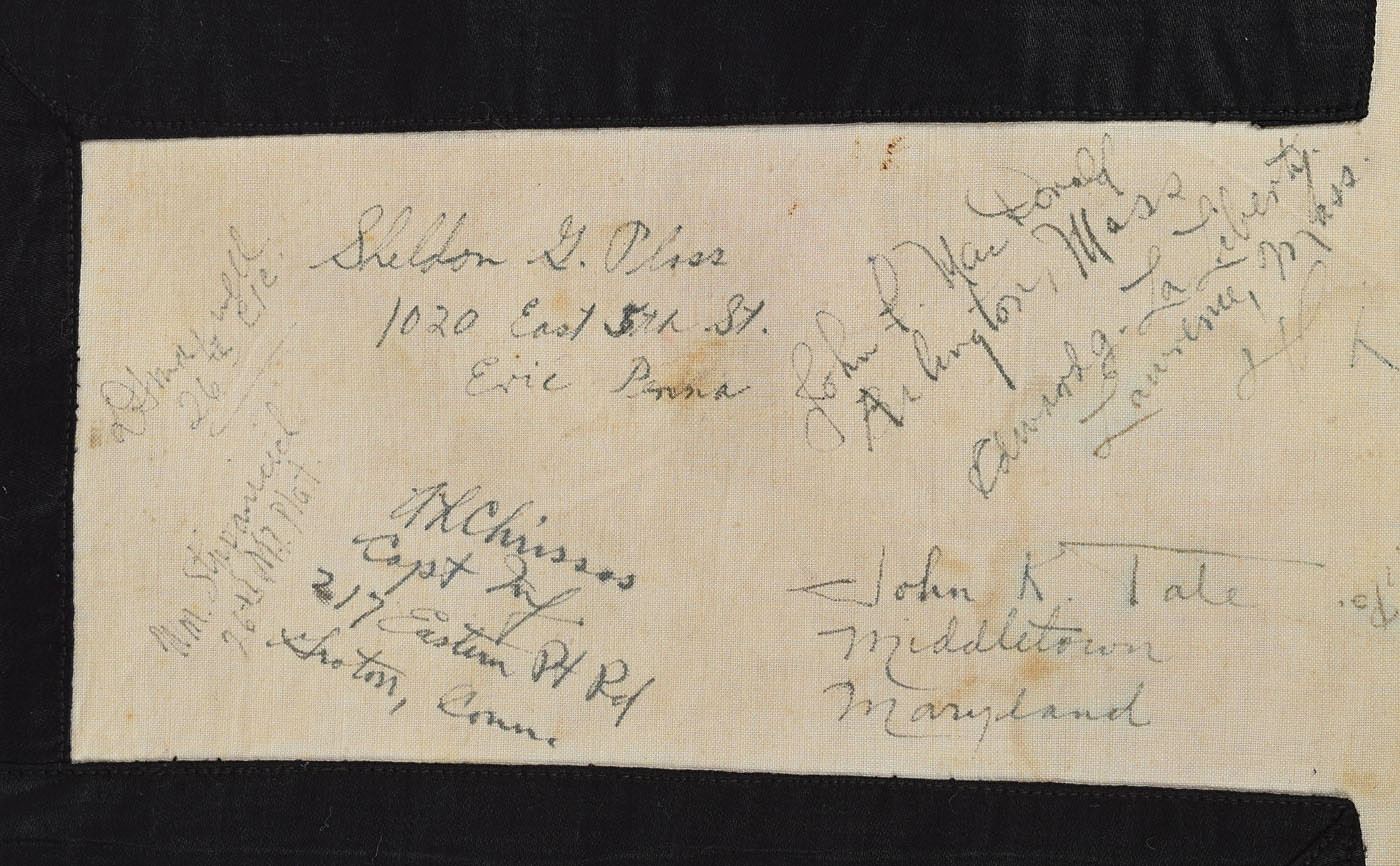 Sheldon G. Ploss
1020 East 5th St.
Erie Penna
John L. MacDonald
Arlington, Mass
Edward g. LaLiberty.
Lawrence, Mass.
26th
Wm.
26th M.P. Plat.
Chrissos
Capt Inf
217 Eastern Pt Rd
Groton, Conn.
John K. Tate
Middletown
Maryland
Pa.